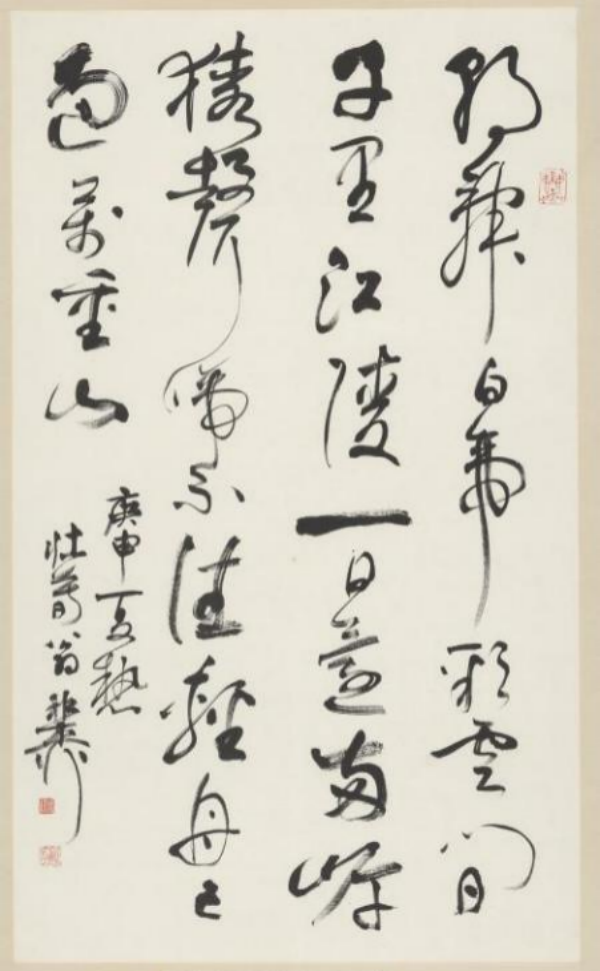 朝辭白帝彩雲間
千里江陵一日還兩岸
猿聲啼不住輕舟已
過萬重山
庚申夏熱
壯暮翁稚柳